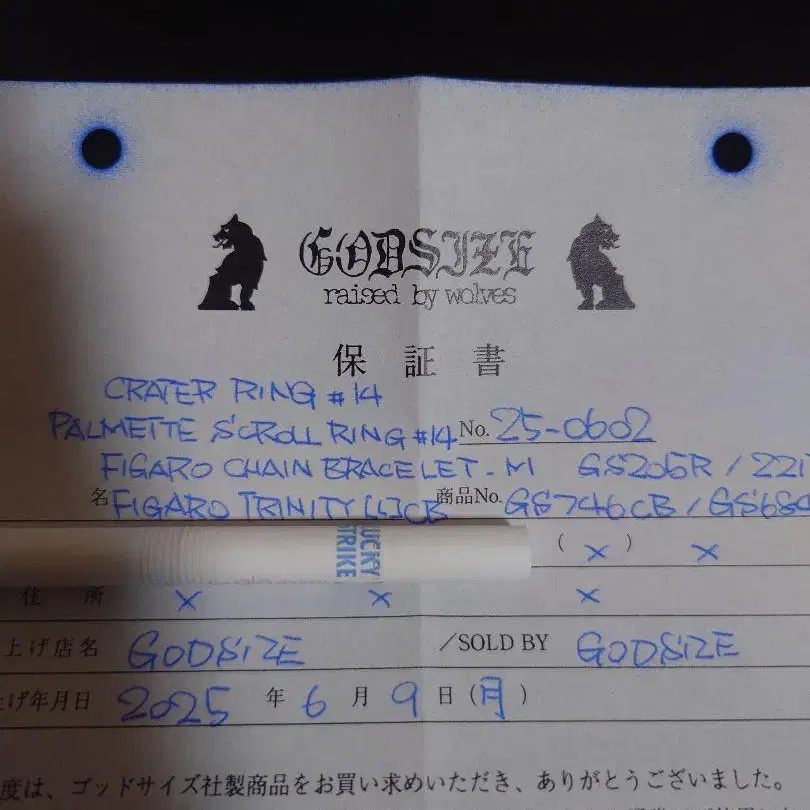 GODSIZE
raised by wolves
保 証 書
CRATER RING #14
PALMETTE SCROLL RING #14 No. 25-0602
FIGARO CHAIN BRACELET-M GS205R / 221
名 FIGARO TRINITY 商品No. GS746CB / GS680
LUCKY STRIKE ( × ) ×
住 所 × × ×
上げ店名 GODSIZE /SOLD BY GODSIZE
げ年月日 2025 年 6 月 9 日 (月)
度は、ゴッドサイズ社製商品をお買い求めいただき、ありがとうございました。